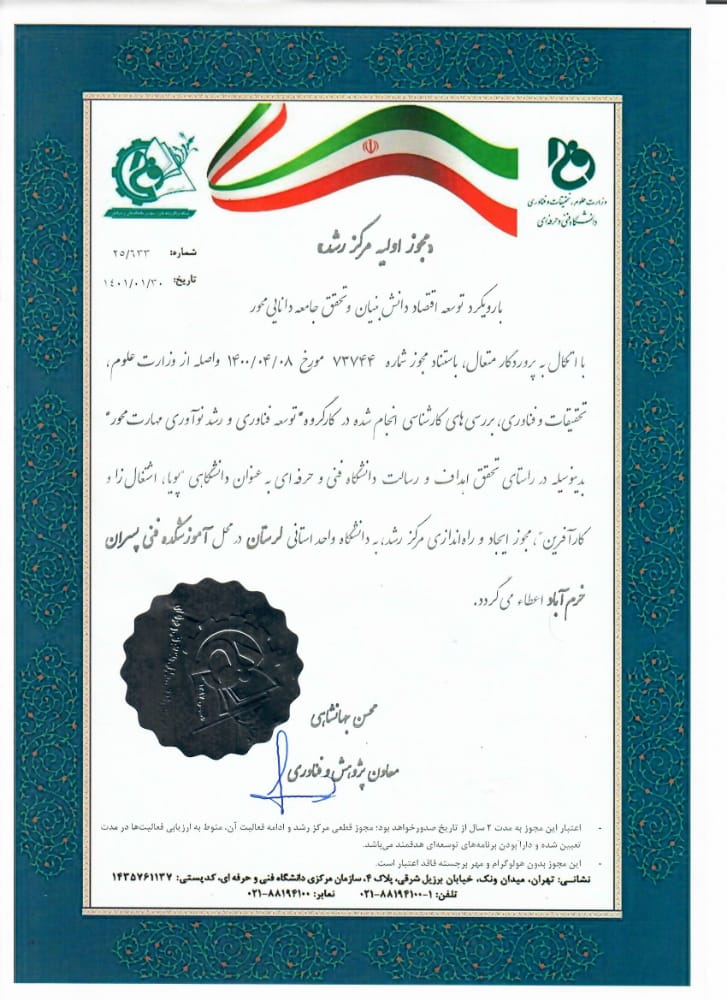 وزارت علوم، تحقیقات و فناوری
دانشگاه فنی و حرفه‌ای
«مجوز اولیه مرکز رشد»
شماره: ۲۵/۶۳۳
تاریخ: ۱۴۰۱/۰۱/۳۰
با رویکرد توسعه اقتصاد دانش بنیان و تحقق جامعه دانایی محور
با اتکال به پروردگار متعال، باستناد مجوز شماره ۷۳۷۴۴ مورخ ۱۴۰۰/۰۴/۰۸ واصله از وزارت علوم،
تحقیقات و فناوری، بررسی های کارشناسی انجام شده در کارگروه "توسعه فناوری و رشد نوآوری مهارت محور"
بدینوسیله در راستای تحقق اهداف و رسالت دانشگاه فنی و حرفه ای به عنوان دانشگاهی "پویا، اشتغال زا و
کارآفرین"، مجوز ایجاد و راه اندازی مرکز رشد، به دانشگاه واحد استانی لرستان در محل آموزشکده فنی پسران
خرم آباد اعطاء می گردد.
محسن جهانشاهی
معاون پژوهش و فناوری
- اعتبار این مجوز به مدت ۲ سال از تاریخ صدور خواهد بود؛ مجوز قطعی مرکز رشد و ادامه فعالیت آن، منوط به ارزیابی فعالیت‌ها در مدت
تعیین شده و دارا بودن برنامه‌های توسعه‌ای هدفمند می‌باشد.
- این مجوز بدون هولوگرام و مهر برجسته فاقد اعتبار است.
نشانی: تهران، میدان ونک، خیابان برزیل شرقی، پلاک ۴، سازمان مرکزی دانشگاه فنی و حرفه ای، کدپستی: ۱۴۳۵۷۶۱۱۳۷
تلفن: ۱-۸۸۱۹۴۱۰۰-۰۲۱ نمابر: ۸۸۱۹۴۱۰۰-۰۲۱